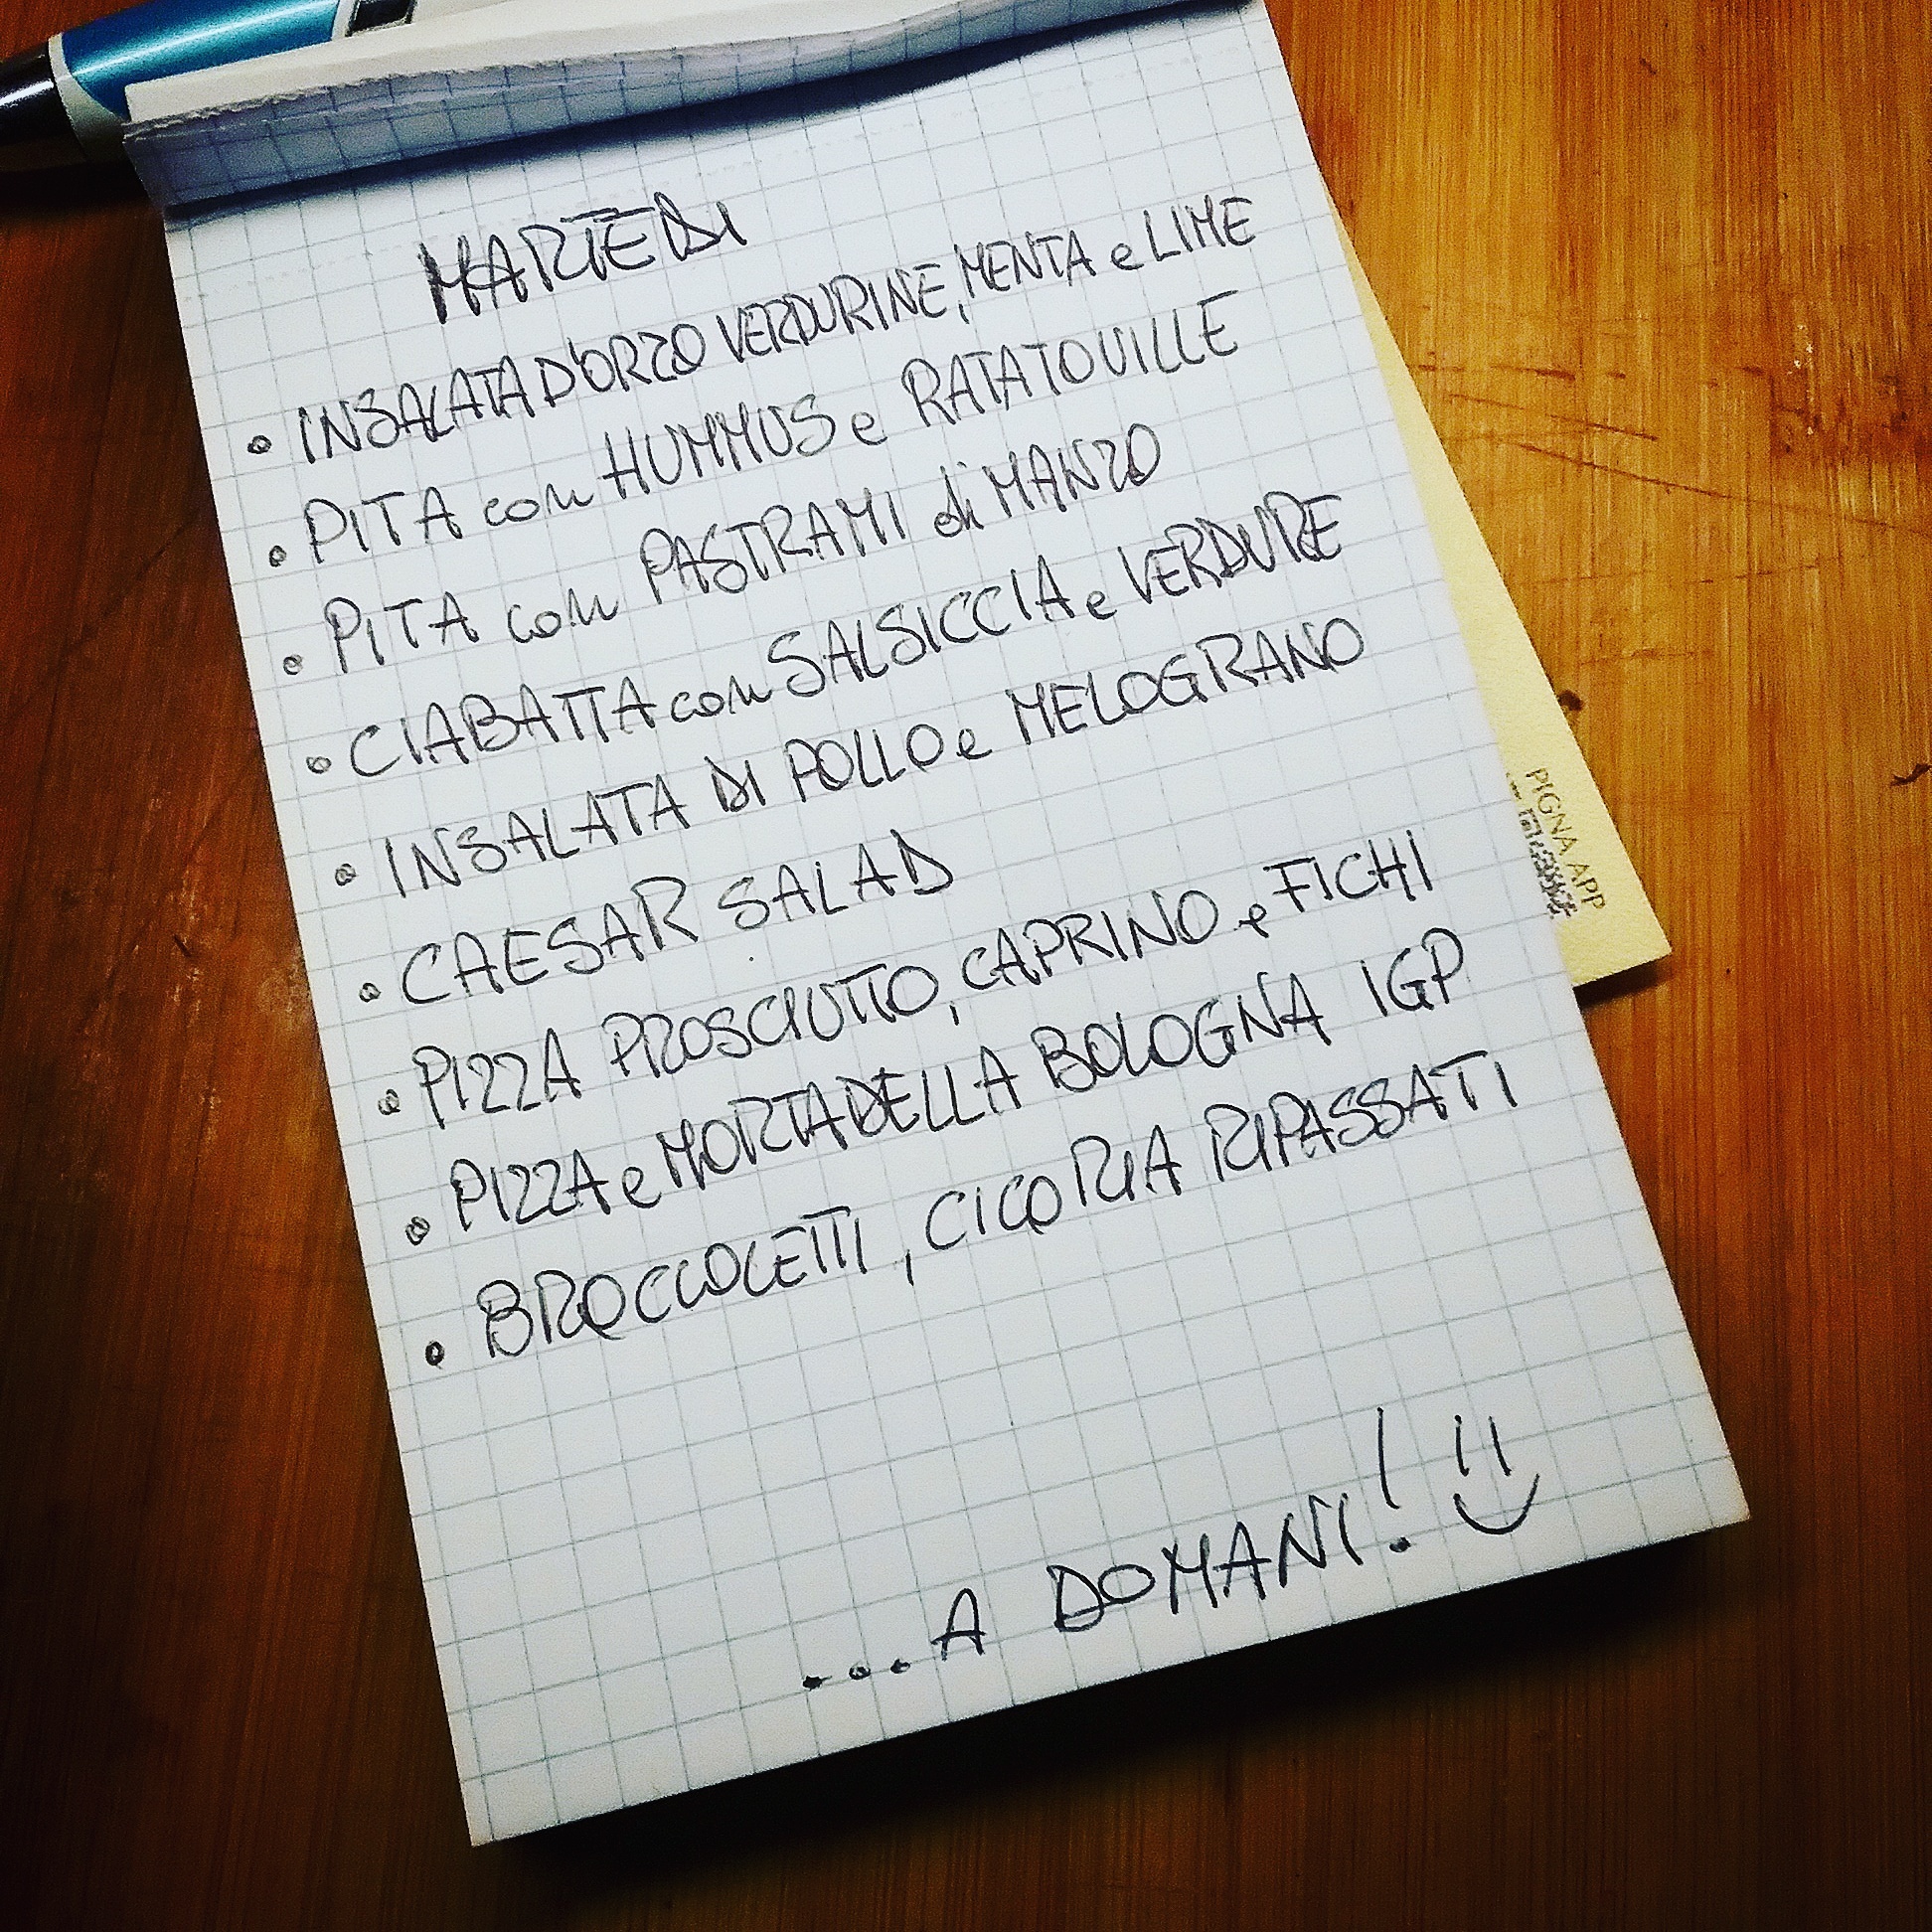 MARTEDI
• INSALATA D'ORZO VERDURINE, MENTA e LIME
• PITA con HUMMUS e RATATOUILLE
• PITA con PASTRAMI di MANZO
• CIABATTA con SALSICCIA e VERDURE
• INSALATA DI POLLO e MELOGRANO
• CAESAR SALAD
• PIZZA PROSCIUTTO, CAPRINO e FICHI
• PIZZA e MORTADELLA BOLOGNA IGP
• BROCCOLETTI, CICORIA RIPASSATI
...A DOMANI! :)
PIGNA APP